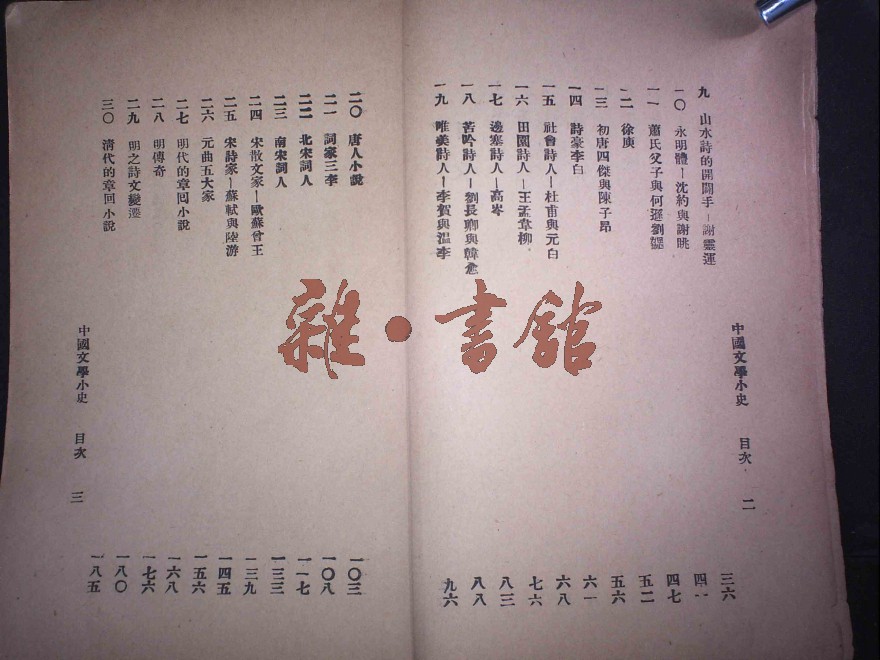 中國文學小史　目次　二
九　山水詩的開闢手—謝靈運　三六
一〇　永明體—沈約與謝眺　四一
一一　蕭氏父子與何遜劉勰　四七
一二　徐庾　五二
一三　初唐四傑與陳子昂　五六
一四　詩豪李白　六一
一五　社會詩人—杜甫與元白　六八
一六　田園詩人—王孟韋柳　七六
一七　邊塞詩人—高岑　八三
一八　苦吟詩人—劉長卿與韓愈　八八
一九　唯美詩人—李賀與溫李　九六
二〇　唐人小說　一〇三
二一　詞家三李　一〇八
二二　北宋詞人　一一七
二三　南宋詞人　一三三
二四　宋散文家—歐蘇曾王　一三九
二五　宋詩家—蘇軾與陸游　一四五
二六　元曲五大家　一五六
二七　明代的章囘小說　一六八
二八　明傳奇　一七六
二九　明之詩文變遷　一八〇
三〇　淸代的章囘小說　一八五
中國文學小史　目次　三
雜·書館